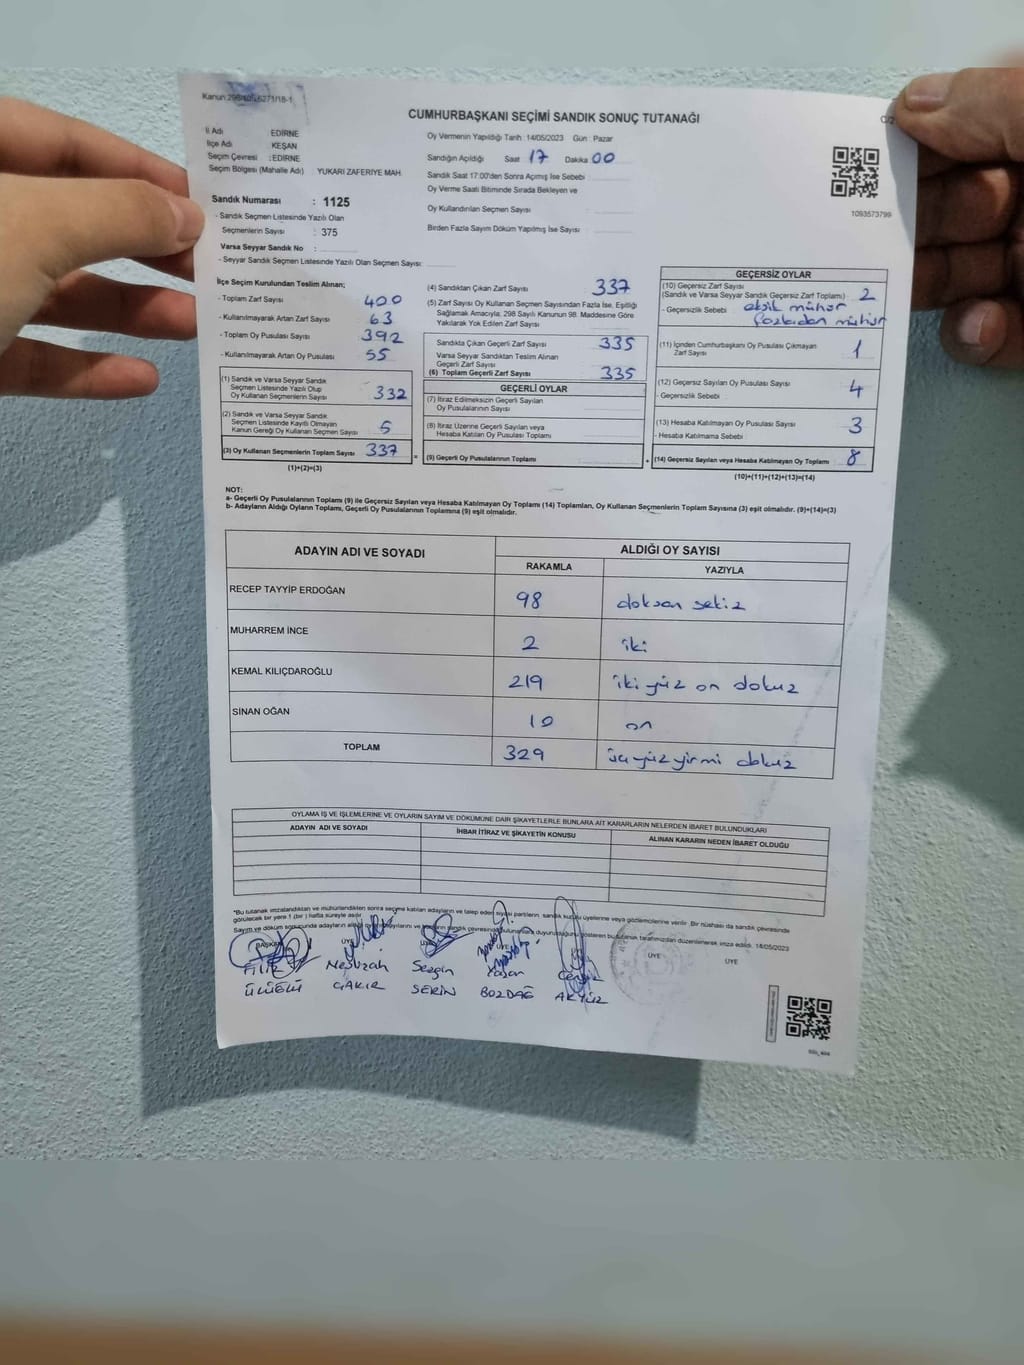 Kanun:298/
CUMHURBAŞKANI SEÇİMİ SANDIK SONUÇ TUTANAĞI
C/2
İl Adı EDİRNE
İlçe Adı KEŞAN
Seçim Çevresi :EDİRNE
Seçim Bölgesi (Mahalle Adı) YUKARI ZAFERİYE MAH.
Sandık Numarası : 1125
- Sandık Seçmen Listesinde Yazılı Olan
Seçmenlerin Sayısı : 375
Varsa Seyyar Sandık No :
- Seyyar Sandık Seçmen Listesinde Yazılı Olan Seçmen Sayısı:
Oy Vermenin Yapıldığı Tarih :14/05/2023 Gün : Pazar
Sandığın Açıldığı Saat 17 Dakika 00
Sandık Saat 17:00'den Sonra Açılmış İse Sebebi :
Oy Verme Saati Bitiminde Sırada Bekleyen ve
Oy Kullandırılan Seçmen Sayısı :
Birden Fazla Sayım Döküm Yapılmış İse Sayısı :
1093573799
İlçe Seçim Kurulundan Teslim Alınan;
- Toplam Zarf Sayısı 400
- Kullanılmayarak Artan Zarf Sayısı 63
- Toplam Oy Pusulası Sayısı 392
- Kullanılmayarak Artan Oy Pusulası 55
(1) Sandık ve Varsa Seyyar Sandık
Seçmen Listesinde Yazılı Olup
Oy Kullanan Seçmenlerin Sayısı 332
(2) Sandık ve Varsa Seyyar Sandık
Seçmen Listesinde Kayıtlı Olmayan
Kanun Gereği Oy Kullanan Seçmen Sayısı 5
(3) Oy Kullanan Seçmenlerin Toplam Sayısı 337
(1)+(2)=(3)
(4) Sandıktan Çıkan Zarf Sayısı 337
(5) Zarf Sayısı Oy Kullanan Seçmen Sayısından Fazla İse, Eşitliği
Sağlamak Amacıyla; 298 Sayılı Kanunun 98. Maddesine Göre
Yakılarak Yok Edilen Zarf Sayısı
Sandıkta Çıkan Geçerli Zarf Sayısı 335
Varsa Seyyar Sandıktan Teslim Alınan
Geçerli Zarf Sayısı
(6) Toplam Geçerli Zarf Sayısı 335
GEÇERLİ OYLAR
(7) İtiraz Edilmeksizin Geçerli Sayılan
Oy Pusulalarının Sayısı
(8) İtiraz Üzerine Geçerli Sayılan veya
Hesaba Katılan Oy Pusulası Toplamı
= (9) Geçerli Oy Pusulalarının Toplamı +
GEÇERSİZ OYLAR
(10) Geçersiz Zarf Sayısı
(Sandık ve Varsa Seyyar Sandık Geçersiz Zarf Toplamı) 2
- Geçersizlik Sebebi : eksik mühür
fazladan mühür
(11) İçinden Cumhurbaşkanı Oy Pusulası Çıkmayan
Zarf Sayısı 1
(12) Geçersiz Sayılan Oy Pusulası Sayısı 4
- Geçersizlik Sebebi :
(13) Hesaba Katılmayan Oy Pusulası Sayısı 3
- Hesaba Katılmama Sebebi :
(14) Geçersiz Sayılan veya Hesaba Katılmayan Oy Toplamı 8
(10)+(11)+(12)+(13)=(14)
NOT:
a- Geçerli Oy Pusulalarının Toplamı (9) ile Geçersiz Sayılan veya Hesaba Katılmayan Oy Toplamı (14) Toplamları, Oy Kullanan Seçmenlerin Toplam Sayısına (3) eşit olmalıdır. (9)+(14)=(3)
b- Adayların Aldığı Oyların Toplamı, Geçerli Oy Pusulalarının Toplamına (9) eşit olmalıdır.
ADAYIN ADI VE SOYADI ALDIĞI OY SAYISI
RAKAMLA YAZIYLA
RECEP TAYYİP ERDOĞAN 98 doksan sekiz
MUHARREM İNCE 2 iki
KEMAL KILIÇDAROĞLU 219 iki yüz on dokuz
SİNAN OĞAN 10 on
TOPLAM 329 üçyüzyirmi dokuz
OYLAMA İŞ VE İŞLEMLERİNE VE OYLARIN SAYIM VE DÖKÜMÜNE DAİR ŞİKAYETLERLE BUNLARA AİT KARARLARIN NELERDEN İBARET BULUNDUKLARI
ADAYIN ADI VE SOYADI İHBAR İTİRAZ VE ŞİKAYETİN KONUSU ALINAN KARARIN NEDEN İBARET OLDUĞU
*Bu tutanak imzalandıktan ve mühürlendikten sonra seçime katılan adayların ve talep eden siyasi partilerin sandık kurulu üyelerine veya gözlemcilerine verilir. Bir nüshası da sandık çevresinde
görülecek bir yere 1 (bir) hafta süreyle asılır.
Sayım ve döküm sonucunda adayların 14/05/2023
BAŞKAN ÜYE ÜYE ÜYE ÜYE ÜYE ÜYE
Sezgin Yaşar Cengiz
ÇAKIR SERİN BOZDAĞ AKYÜZ